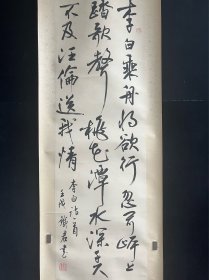 李白乘舟将欲行忽闻岸上
踏歌聲桃花潭水深千尺
不及汪倫送我情
李白诗一首
书